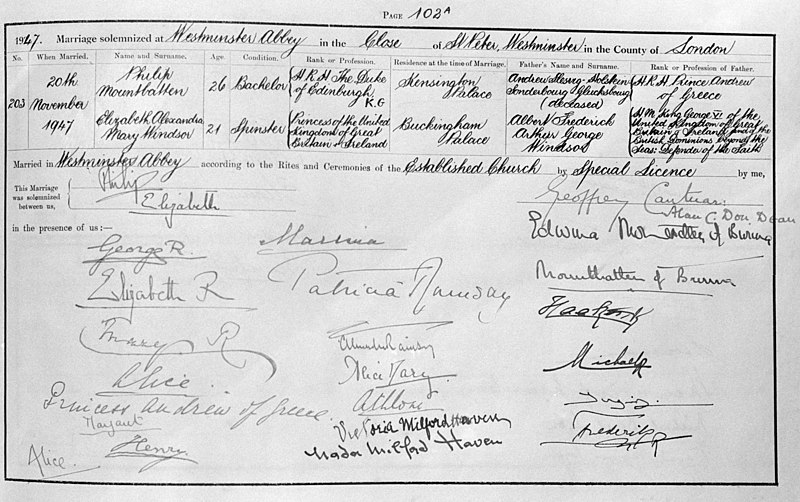 PAGE 102A
1947. Marriage solemnized at Westminster Abbey in the Close of St Peter, Westminster in the County of London
No. When Married. Name and Surname. Age. Condition. Rank or Profession. Residence at the time of Marriage. Father's Name and Surname. Rank or Profession of Father.
203
20th
November
1947
Philip
Mountbatten
26 Bachelor
H.R.H The Duke
of Edinburgh,
K.G
Kensington
Palace
Andrew Holstein
Sonderbourg Glucksbourg
(deceased)
H R H Prince Andrew
of Greece
Elizabeth Alexandra
Mary Windsor
21 Spinster
Princess of the United
Kingdom of Great
Britain & Ireland
Buckingham
Palace
Albert Frederick
Arthur George
Windsor
H.M. King George VI of the
United Kingdom of Great
Britain & Ireland and the
British Dominions beyond the
Seas: Defender of the Faith
Married in Westminster Abbey according to the Rites and Ceremonies of the Established Church by Special Licence by me,
This Marriage
was solemnized
between us,
Philip
Elizabeth
Geoffrey Cantuar:
Alan C. Don Dean
in the presence of us:—
George R.
Marina
Edwina Mountbatten of Burma
Elizabeth R
Patricia Ramsay
Mountbatten of Burma
Mary R
Alexander Ramsay
Haakon R
Alice.
Alice Mary.
Michael R
Princess Andrew of Greece.
Athlone
Margaret
Victoria Milford Haven
Henry
Nada Milford Haven
Frederik R
Alice.